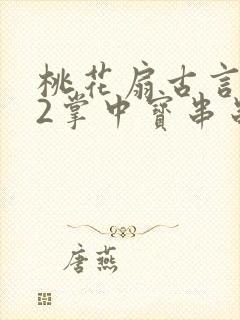 桃花扇古言
2掌中寳串
唐燕